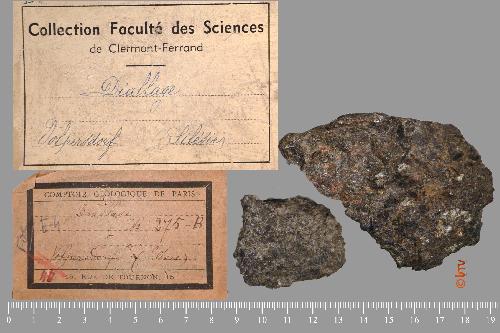 Collection Faculté des Sciences
de Clermont-Ferrand
Diallage
Volpersdorf Silésie
COMPTOIR GÉOLOGIQUE DE PARIS
Diallage
275-B
Volpersdorf
RUE DE TOURNON, 15
©BTV
0 1 2 3 4 5 6 7 8 9 10 11 12 13 14 15 16 17 18 19